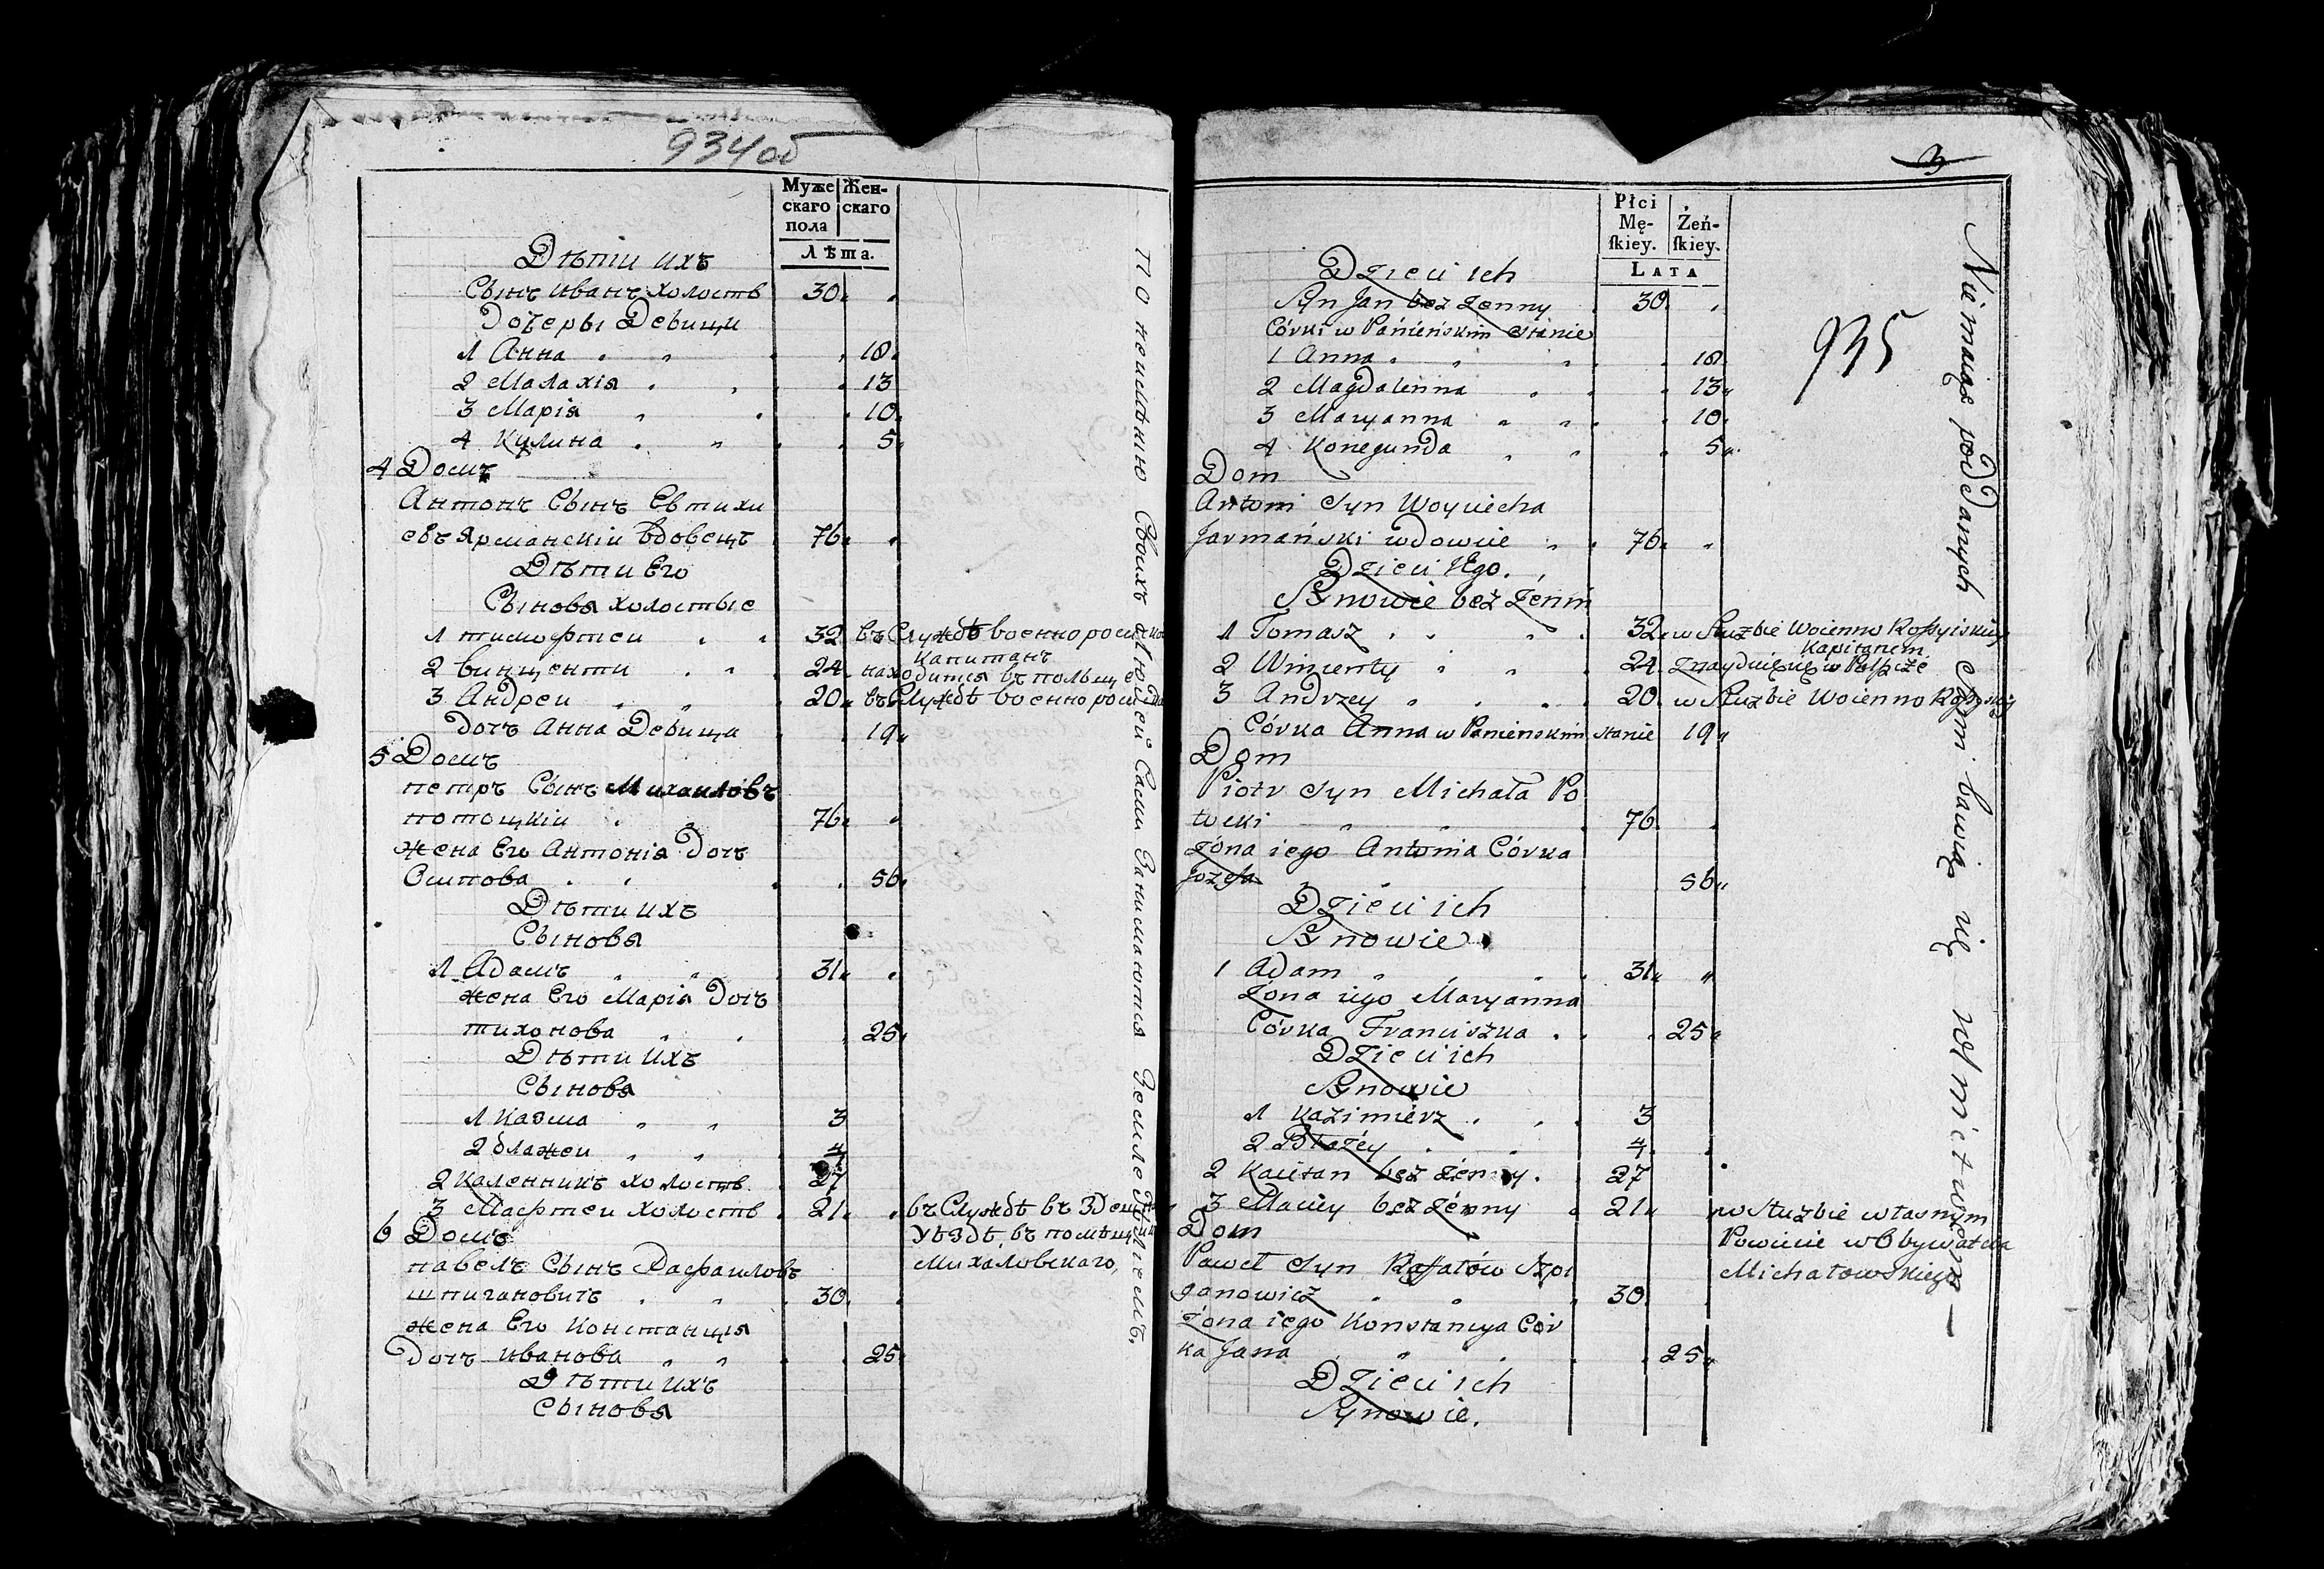 934об
Муже Жен-
скаго скаго
пола
Лѣта.
Дѣти ихъ
Сынъ Иванъ холостъ 30
Дочеры Девицы
1 Анна 18
2 Малахія 13
3 Марія 10
4 Кулина 5
4 Домъ
Антонъ Сынъ Евтихи
евъ Ярманскіи вдовецъ 76
Дѣти Его
Сыновя холостые
1 тимофтеи 32 въ Службѣ военно росиско
2 винценти 24 находится въ польще
Капитанъ
3 Андреи 20 въ Службѣ военно росиско
дочъ Анна Девица 19
5 Домъ
петръ Сынъ Михаиловъ
потоцкіи 76
жена Его Антонія дочъ
Осипова 56
Дѣти ихъ
Сыновя
1 Адамъ 31
жена Его Марія дочъ
тихонова 25
Дѣти ихъ
Сыновя
1 Казма 3
2 блажеи 4
2 Каленникъ холостъ 27
3 Мафтеи холостъ 21 въ Службѣ въ Здешнем
6 Домъ Уѣздѣ въ помѣщика
павелъ Сынъ Рафаиловъ Михаловскаго,
шпигановичъ 30
жена Его Констанция
Дочъ иванова 25
Дѣти ихъ
Сыновя
По неимѣнию Своихъ людей Сами Занимаются Земледѣлиемъ.
3
Płci
Mę- Żeń-
ſkiey. ſkiey.
LATA
935
Dzieci ich
Syn Jan bez żenny 30
Córki w Panieńskim Stanie
1 Anna 18
2 Magdalenna 13
3 Maryanna 10
4 Konegunda 5
Dom
Antoni Syn Woyciecha
Jarmański wdowiec 76
Dzieci iego
Synowie bez żenni
1 Tomasz 32 w Służbie Woienno Roſsyiskiey
Kapitanem
2 Wincenty 24 znayduie się w Polszcze
3 Andrzey 20 w Służbie Woienno Roſsyiskiey
Córka Anna w Panieńskim Stanie 19
Dom
Piotr Syn Michała Po
tocki 76
żona iego Antonia Córka
Jozefa 56
Dzieci ich
Synowie
1 Adam 31
żona iego Maryanna
Córka Franciszka 25
Dzieci ich
Synowie
1 Kazimierz 3
2 Błażey 4
2 Kaietan bez żenny 27
3 Maciey bez żenny 21 w Służbie w tasnym
Dom Powiecie w Obywatela
Paweł Syn Rafałów Szpi Michałowskiego
ganowicz 30
żona iego Konstancya Cór
ka Jana 25
Dzieci ich
Synowie.
Nie maiąc poddanych sami bawią się rolnictwem —